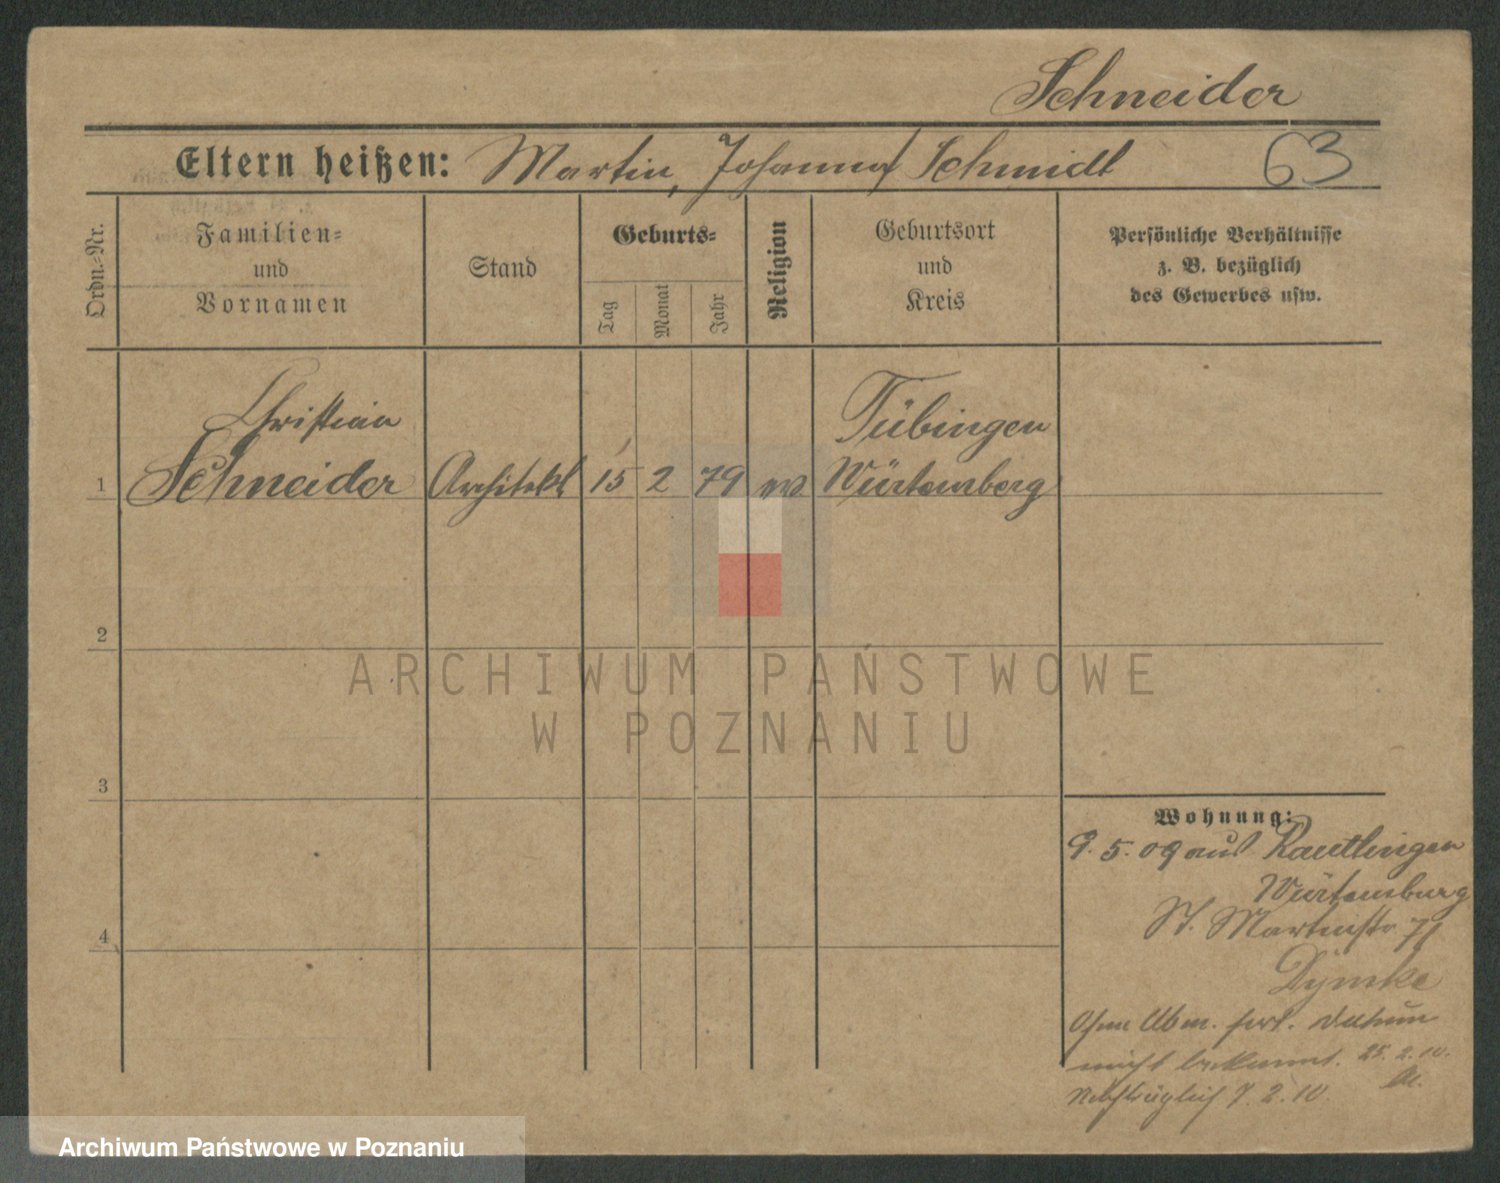 Schneider
Eltern heißen: Martin, Johanna Schmidt 63
Ordn.-Nr.
Familien-
und
Vornamen
Stand
Geburts-
Tag
Monat
Jahr
Religion
Geburtsort
und
Kreis
Persönliche Verhältnisse
z. B. bezüglich
des Gewerbes usw.
Christian Tübingen
1 Schneider Architekt 15 2 79 ev Würtemberg
2
ARCHIWUM PAŃSTWOWE
W POZNANIU
3
Wohnung:
9. 5. 09 aus Reutlingen
Würtemburg
St. Martinstr 71
Dymke
4
Ohne Abm. fort. Datum
nicht bekannt. 25. 2. 10.
Nachträglich 7. 2. 10.
Archiwum Państwowe w Poznaniu